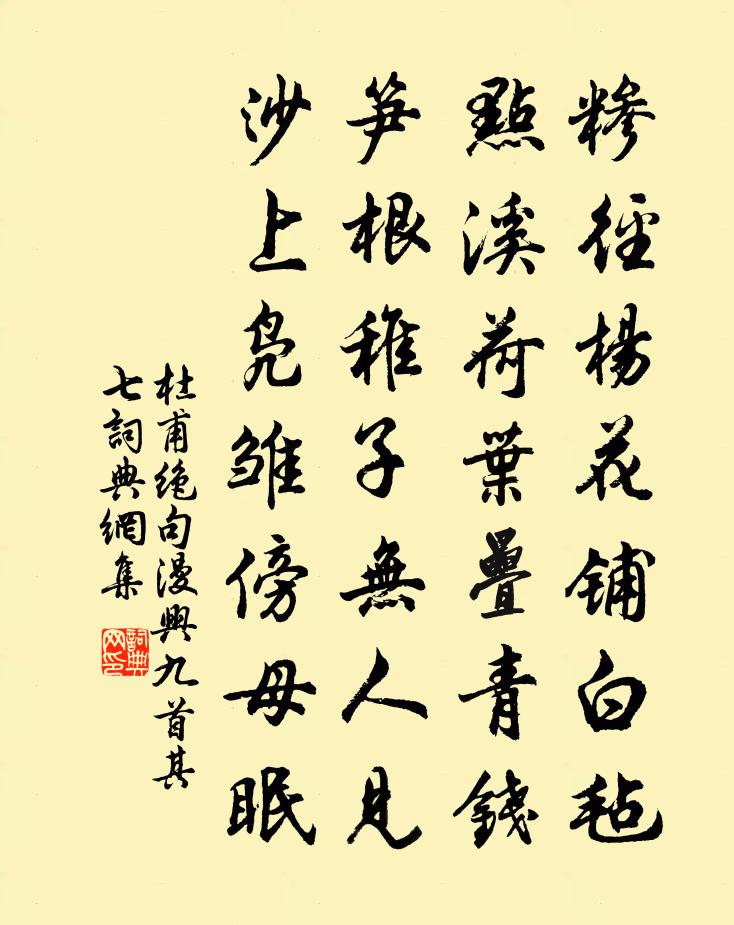 糝徑楊花鋪白毡
點溪荷葉疊青錢
笋根稚子無人見
沙上鳧雛傍母眠
杜甫絶句漫興九首其
七詞典網集
詞典
网印